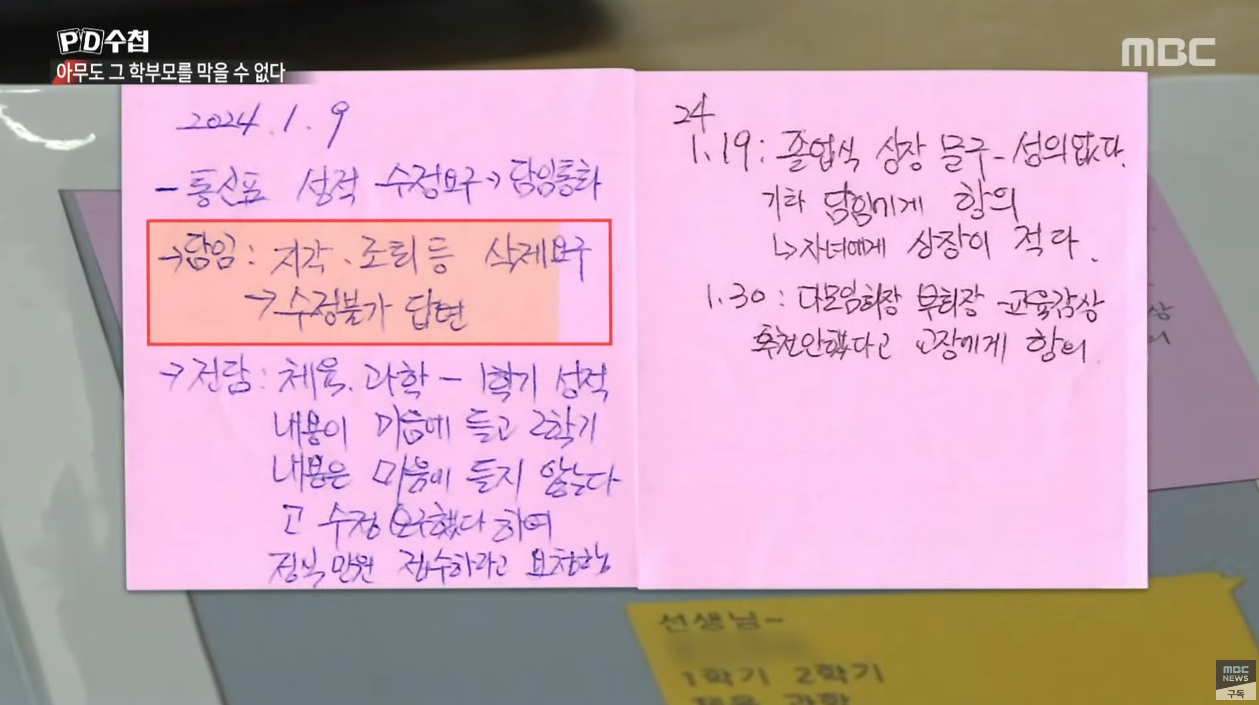 PD수첩
아무도 그 학부모를 막을 수 없다
MBC
2024. 1. 9
- 통신표 성적 수정요구 → 담임통화
→ 담임 : 지각 . 조퇴 등 삭제요구
→ 수정불가 답변
→ 전담 : 체육. 과학 - 1학기 성적
내용이 마음에 들고 2학기
내용은 마음에 들지 않는다
고 수정 요구했다 하여
정보 민원 접수하라고 요청함
24
1. 19 : 졸업식 상장 문구 - 성의없다.
기타 담임에게 항의
↳ 자녀에게 상장이 적다.
1. 30 : 다모임회장 부회장 - 교육감상
추천안했다고 교장에게 항의
선생님~
1학기 2학기
체육 과학
MBC
NEWS
구독